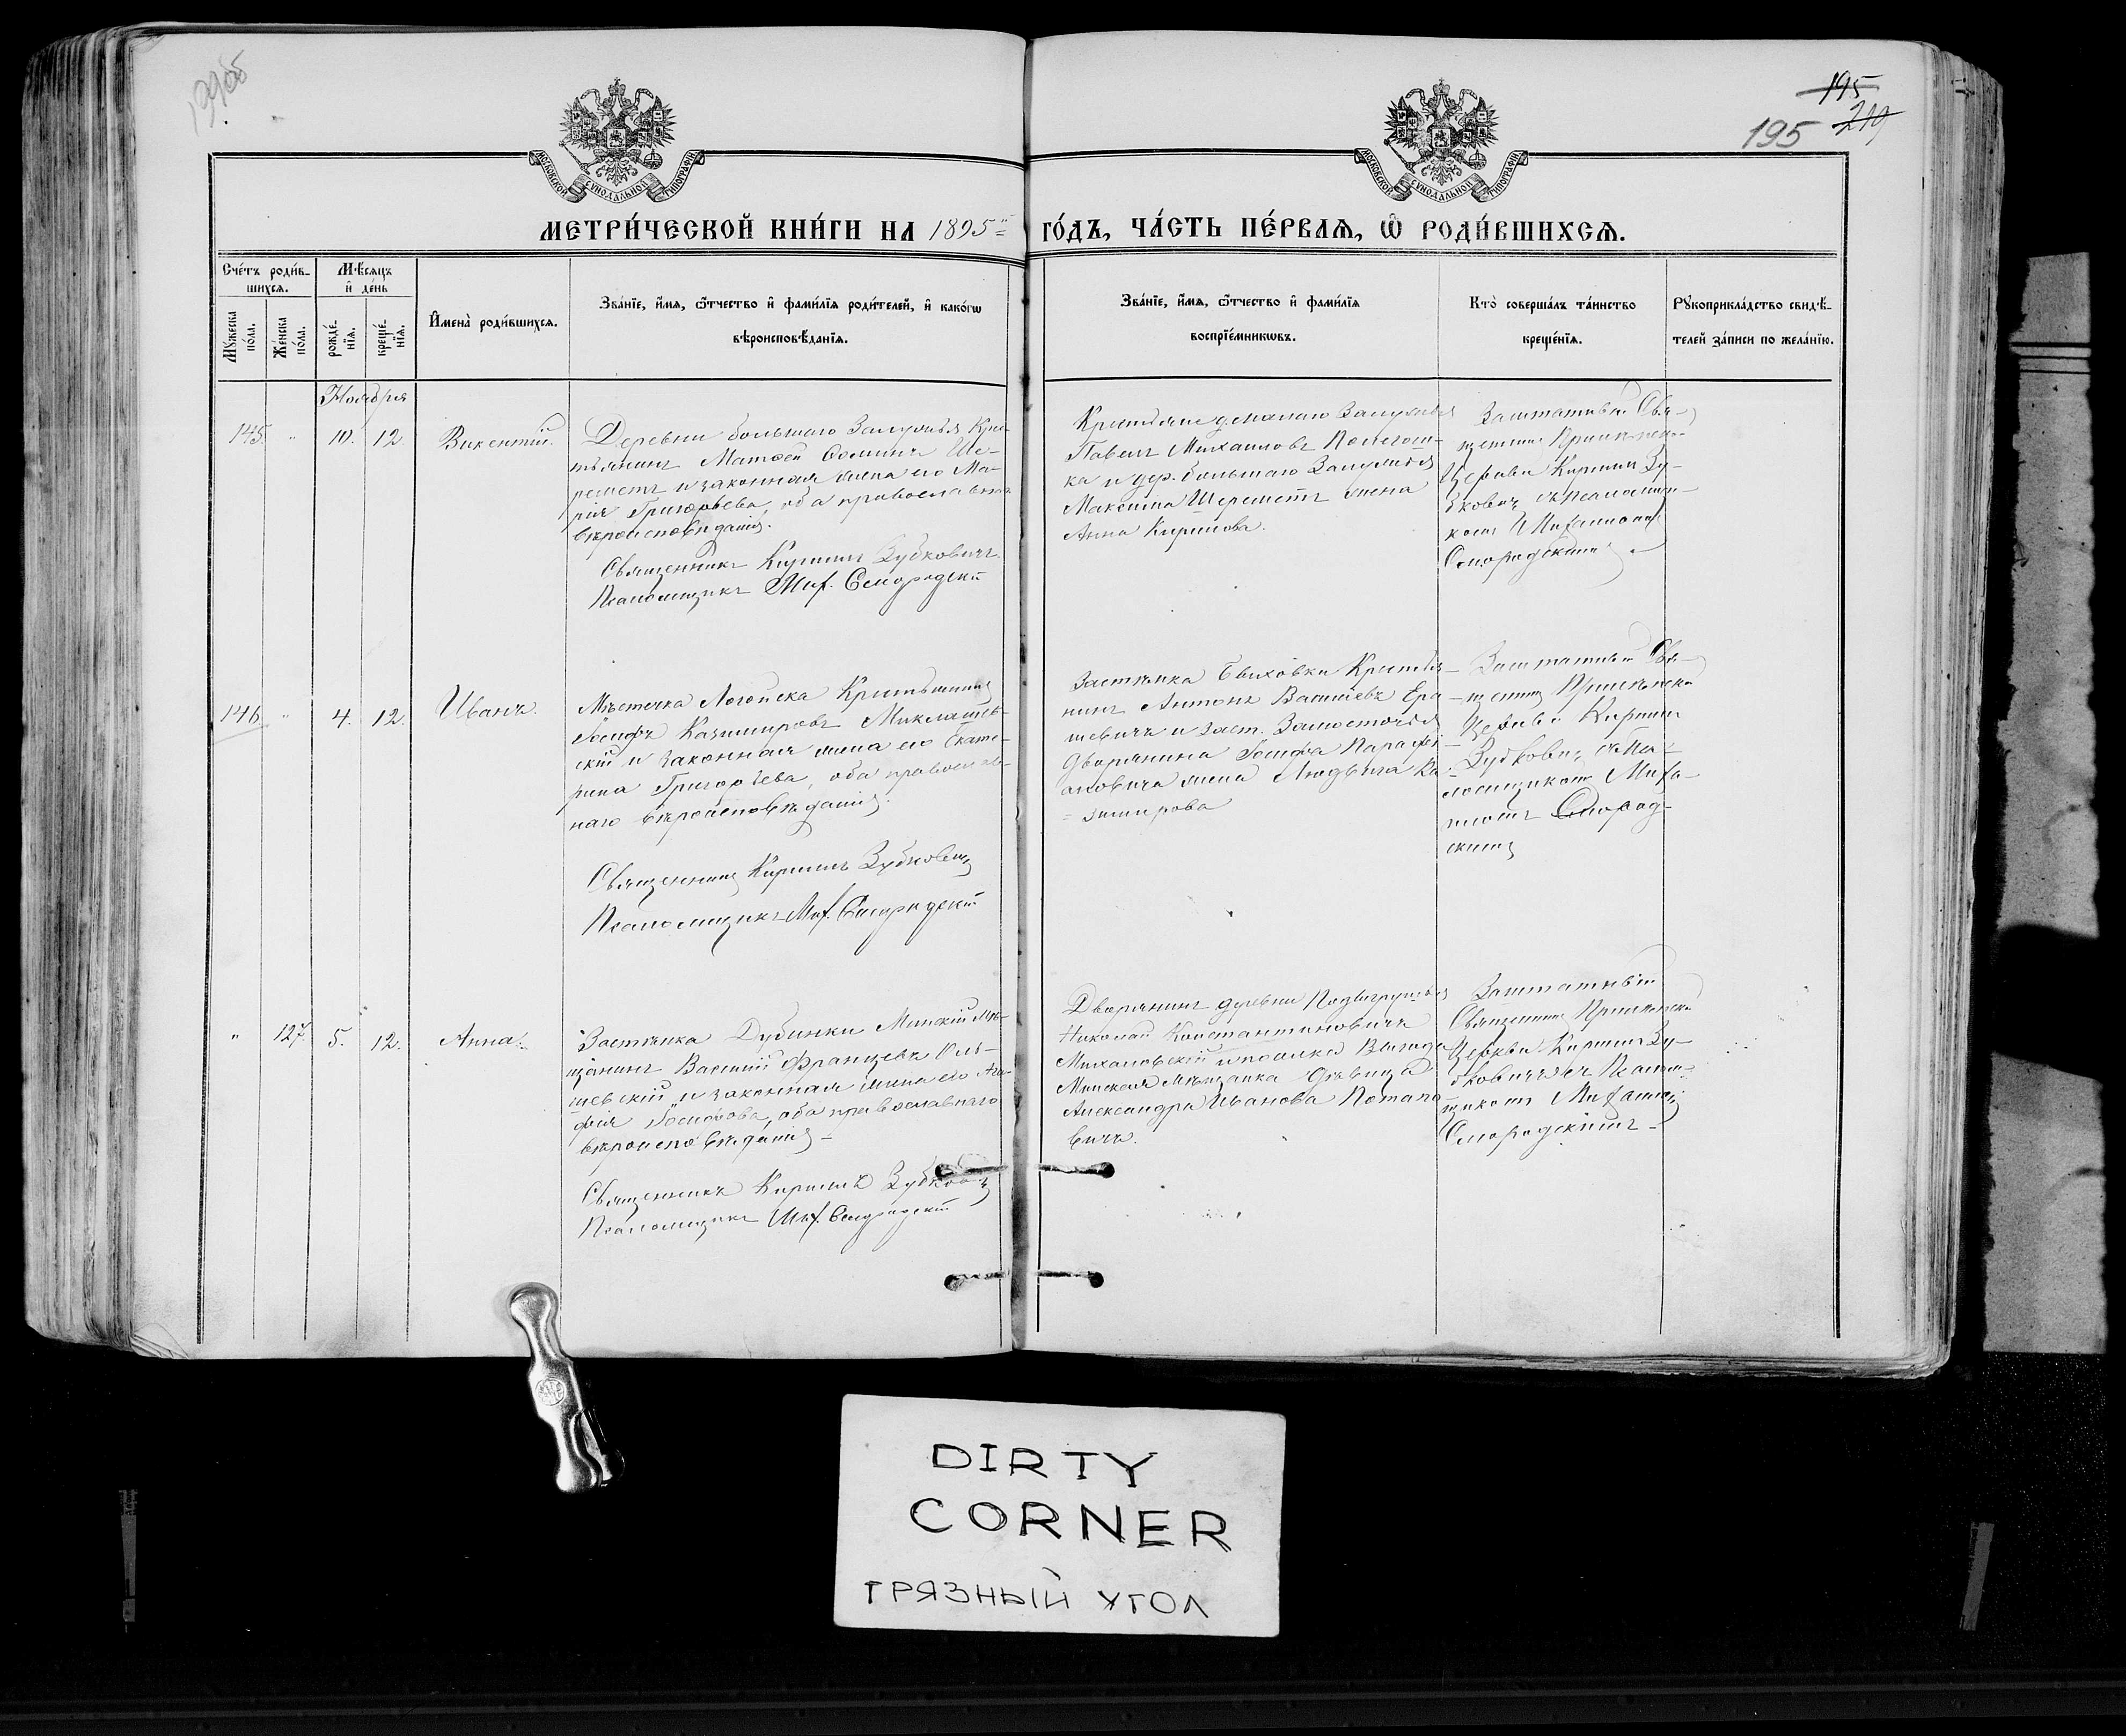 195
219
195
МОСКОВСКОЙ СѴНОДАЛЬНОЙ ТИПОГРАФІИ
МОСКОВСКОЙ СѴНОДАЛЬНОЙ ТИПОГРАФІИ
МЕТРИ́ЧЕСКОЙ КНИ́ГИ НА 1895 ГО́ДЪ, ЧА́СТЬ ПЕ́РВАѦ, Ѿ РОДИ́ВШИХСѦ.
Сче́тъ роди́в-
шихсѧ.
Мꙋ́жеска по́ла.
Же́нска по́ла.
Мѣ́сѧцъ
и҆ де́нь
рожде́-
нїѧ.
креще́-
нїѧ.
И҆мена̀ роди́вшихсѧ.
Зва́нїе, и҆́мѧ, ѻ҆́тчество и҆ фами́лїѧ роди́телей, и҆ како́гѡ
вѣроисповѣ́данїѧ.
Зва́нїе, и҆́мѧ, ѻ҆́тчество и҆ фами́лїѧ
воспрїе́мникѡвъ.
Кто̀ соверша́лъ та́инство
креще́нїѧ.
Рꙋкоприкла́дство свидѣ́-
телей за́писи по жела́нїю.
Ноября
145. " 10. 12 Викентій.
Деревни большаго Залужья Кре-
стьянинъ Матѳей Ѳоминъ Ше-
реметъ и законная жена его Ма-
рія Григорьева, оба православнаго
вѣроисповѣданія.
Священникъ Кириллъ Зубковичъ
Псаломщикъ Миѳ. Смородскій
Крестьяне д. малаго Залужья
Павелъ Михаиловъ
ка и дер. большаго Залужья
Максима Шереметъ жена
Анна Кирилова.
Заштатный Свя-
щенникъ
Церкви Кириллъ Зу-
бковичъ съ псаломщи-
комъ
Смородскимъ
146 " 4. 12. Иванъ.
Мѣстечка Логойска Крестьянинъ
Іосифъ Казимировъ Миклашев-
скій и законная жена его Екате-
рина Григорьева, оба православ-
наго вѣроисповѣданія.
Священникъ Кириллъ Зубковичъ
Псаломщикъ Миѳ. Смородскій
Застѣнка Быховки Крестья-
нинъ Антонъ Васильевъ Ера-
шевичъ и заст. Замосточья
Дворянина Іосифа
жена Людвига Ка-
зимирова
Заштатный Свя-
щенникъ
Церкви Кириллъ
Зубковичъ съ Пса-
ломщикомъ Миѳа-
Смород-
скимъ
" 127. 5. 12. Анна.
Застѣнка Дубинки Минскій мѣ-
щанинъ Василій Францевъ Оль-
шевскій и законная жена его Ага-
фія Іосифова, оба православнаго
вѣроисповѣданія
Священникъ Кириллъ Зубковичъ
Псаломщикъ Миѳ. Смородскій
Дворянинъ деревни
Николай Константиновичъ
Михаловскій и
Минская мѣщанка дѣвица
Александра Иванова Потапо-
вичъ.
Заштатный
Священникъ
Церкви Кириллъ Зу-
бковичъ съ Псалом-
щикомъ
Смородскимъ
DIRTY
CORNER
ГРЯЗНЫЙ УГОЛ